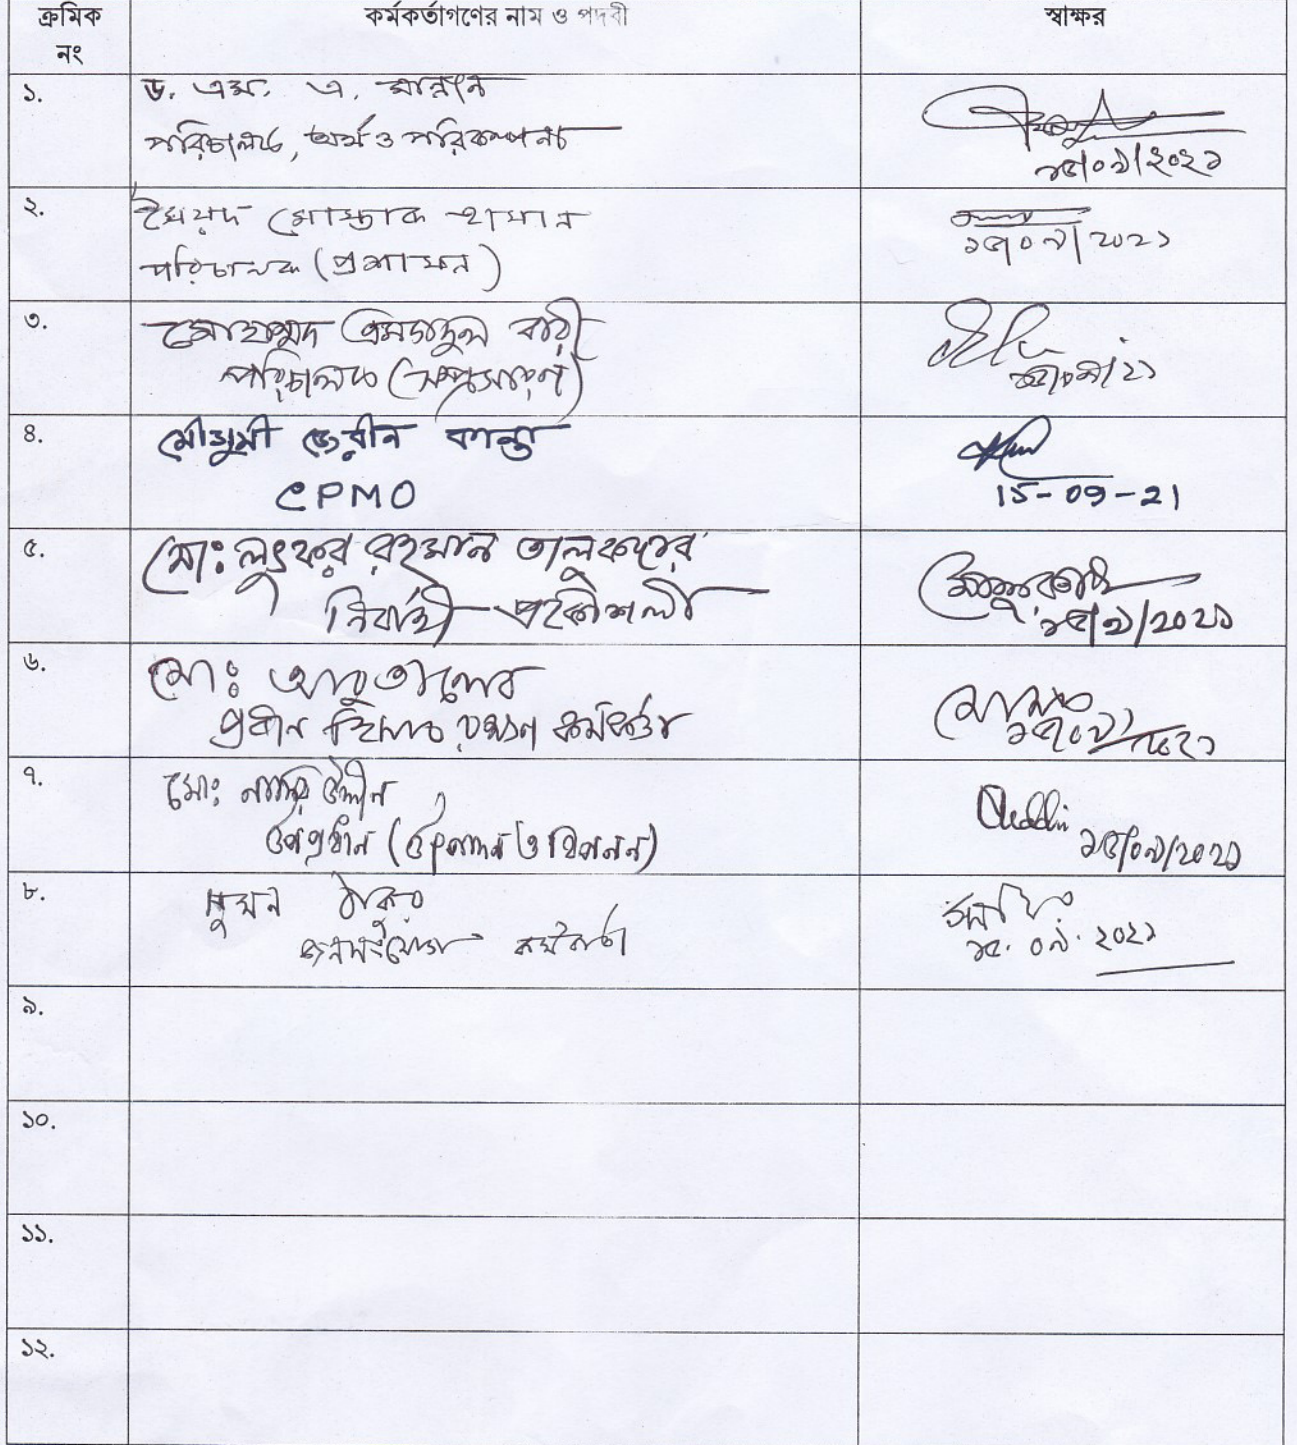 ক্রমিক নং
কর্মকর্তাগণের নাম ও পদবী
স্বাক্ষর
১.
ড. এম. এ. মান্নান
পরিচালক, অর্থ ও পরিকল্পনা
১৫/০৯/২০২১
২.
সৈয়দ মোস্তাক হাসান
পরিচালক (প্রশাসন)
১৫/০৯/২০২১
৩.
মোহাম্মদ এমদাদুল বারী
পরিচালক (সম্প্রসারণ)
১৫/০৯/২১
৪.
মৌসুমী জেরীন কান্তা
CPMO
15-09-21
৫.
মোঃ লুৎফর রহমান তালুকদার
নির্বাহী প্রকৌশলী
১৫/৯/২০২১
৬.
মোঃ আবু তালেব
প্রধান হিসাব রক্ষণ কর্মকর্তা
১৫/০৯/২০২১
৭.
মোঃ নাসির উদ্দীন
উপপ্রধান (উৎপাদন ও বিপনন)
১৫/০৯/২০২১
৮.
সুমন ঠাকুর
জনসংযোগ কর্মকর্তা
১৫.০৯.২০২১
৯.
১০.
১১.
১২.